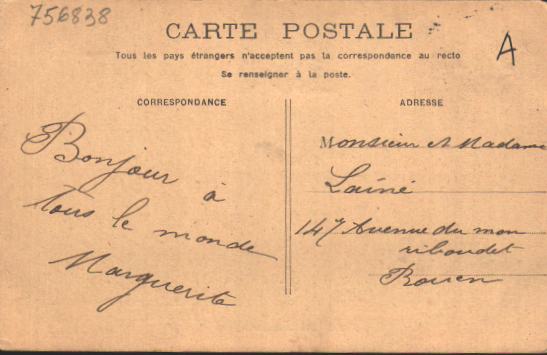 756838
CARTE POSTALE
A
Tous les pays étrangers n'acceptent pas la correspondance au recto
Se renseigner à la poste.
CORRESPONDANCE
Bonjour à
tous le monde
Marguerite
ADRESSE
Monsieur et Madame
Lainé
147 Avenue du mon
riboudet
Rouen